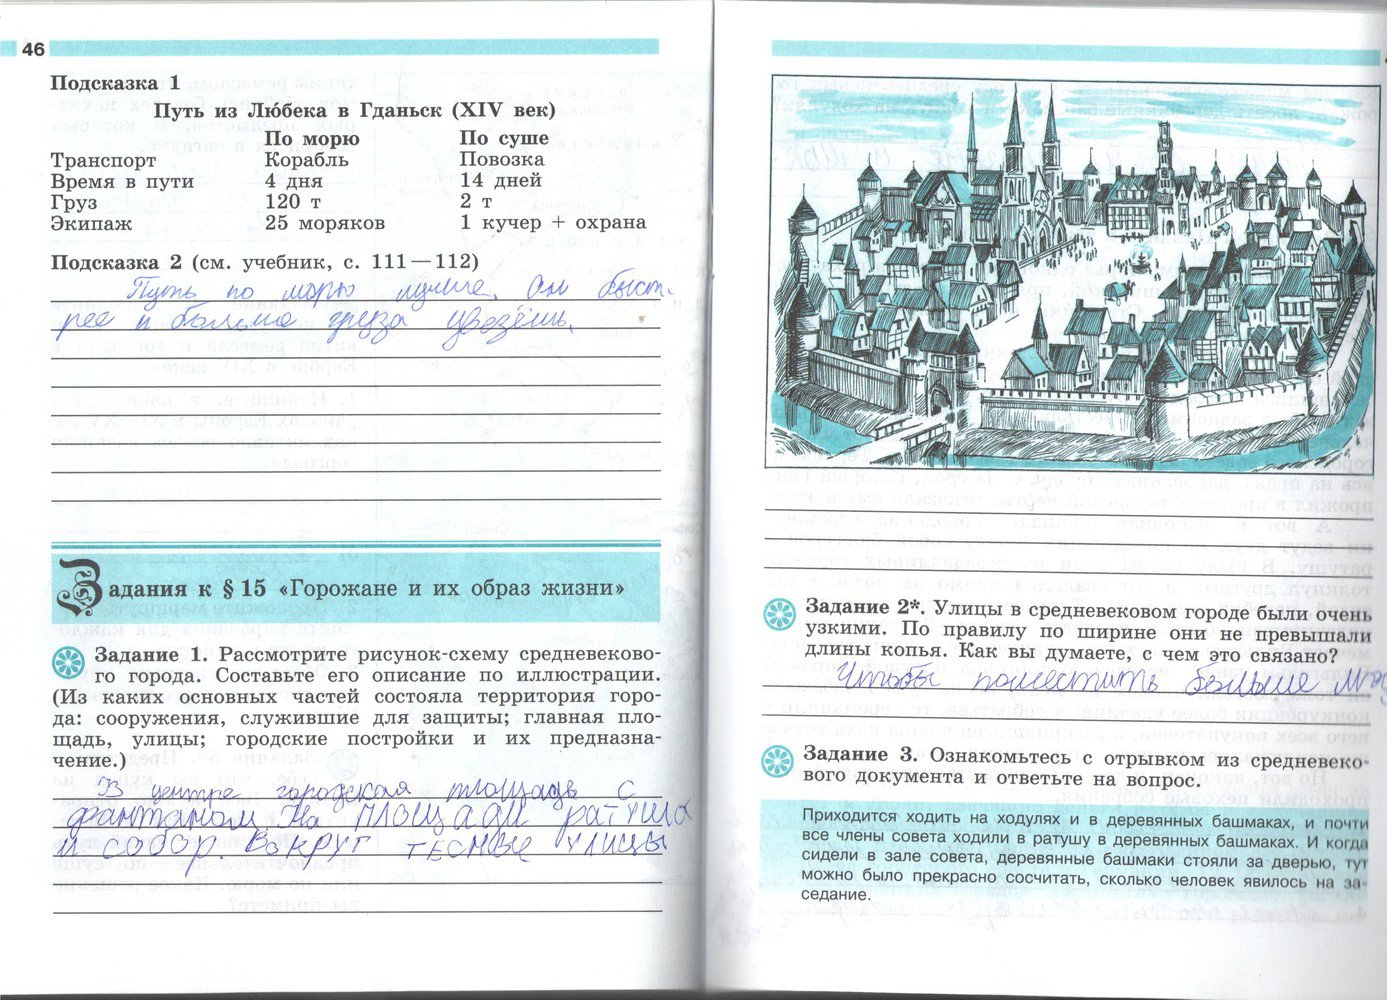 46
Подсказка 1
Путь из Любека в Гданьск (XIV век)
По морю По суше
Транспорт Корабль Повозка
Время в пути 4 дня 14 дней
Груз 120 т 2 т
Экипаж 25 моряков 1 кучер + охрана
Подсказка 2 (см. учебник, с. 111—112)
Путь по морю лучше. Он быст-
рее и больше груза увезёшь.
Задания к § 15 «Горожане и их образ жизни»
Задание 1. Рассмотрите рисунок-схему средневеково-
го города. Составьте его описание по иллюстрации.
(Из каких основных частей состояла территория горо-
да: сооружения, служившие для защиты; главная пло-
щадь, улицы; городские постройки и их предназна-
чение.)
В центре городская площадь с
фантаном. На площади ратуша
и собор. Вокруг тесные улицы
Задание 2*. Улицы в средневековом городе были очень
узкими. По правилу по ширине они не превышали
длины копья. Как вы думаете, с чем это связано?
Чтобы поместить больше
Задание 3. Ознакомьтесь с отрывком из средневеко-
вого документа и ответьте на вопрос.
Приходится ходить на ходулях и в деревянных башмаках, и почти
все члены совета ходили в ратушу в деревянных башмаках. И когда
сидели в зале совета, деревянные башмаки стояли за дверью, тут
можно было прекрасно сосчитать, сколько человек явилось на за-
седание.